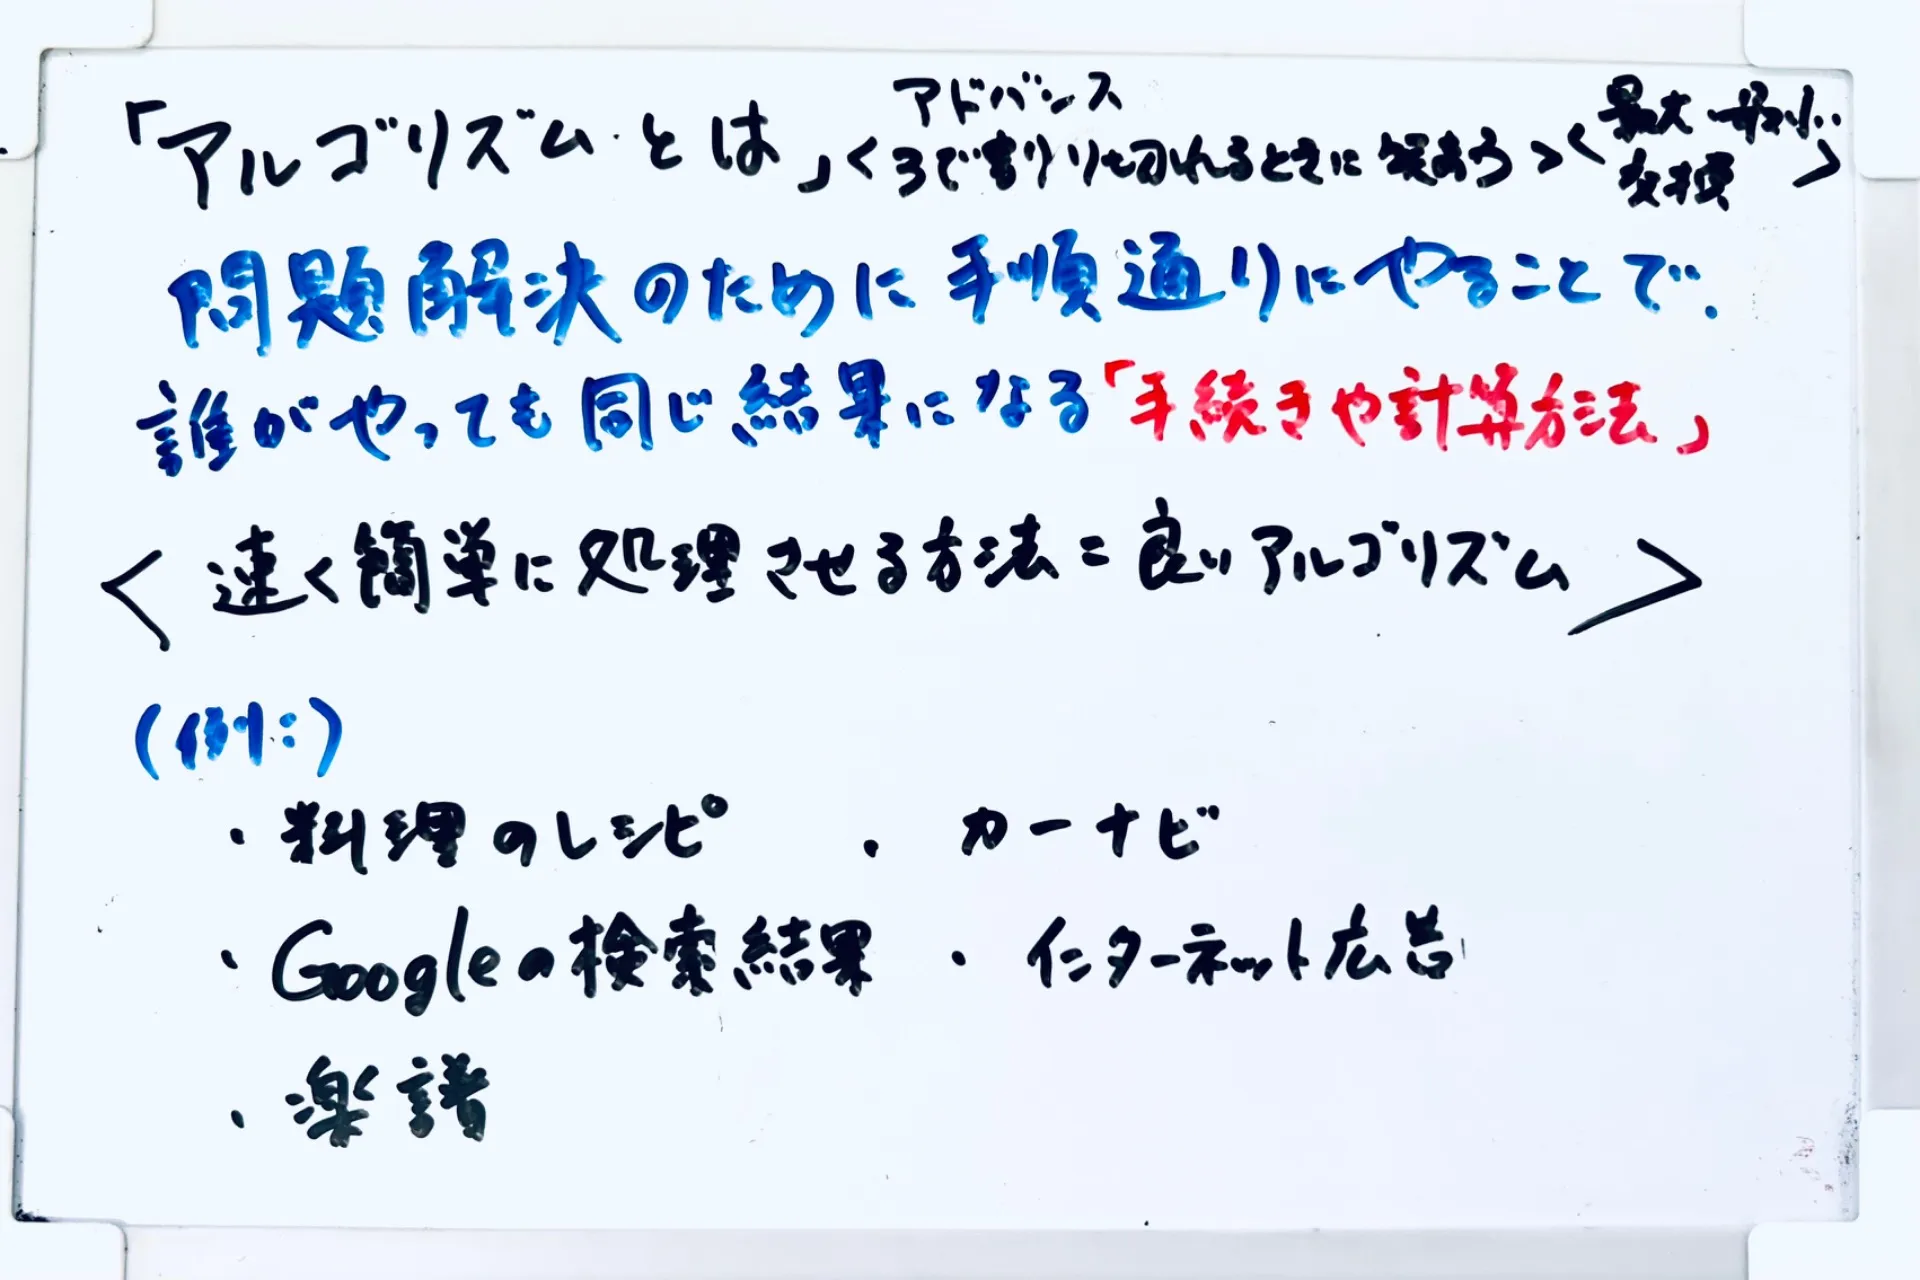 アドバンス
「アルゴリズムとは」<3で割り切れるときに笑おう><最大 最小
交換>
問題解決のために手順通りにやることで、
誰がやっても同じ結果になる「手続きや計算方法」
<速く簡単に処理させる方法=良いアルゴリズム>
(例:)
・料理のレシピ ・カーナビ
・Googleの検索結果 ・インターネット広告
・楽譜